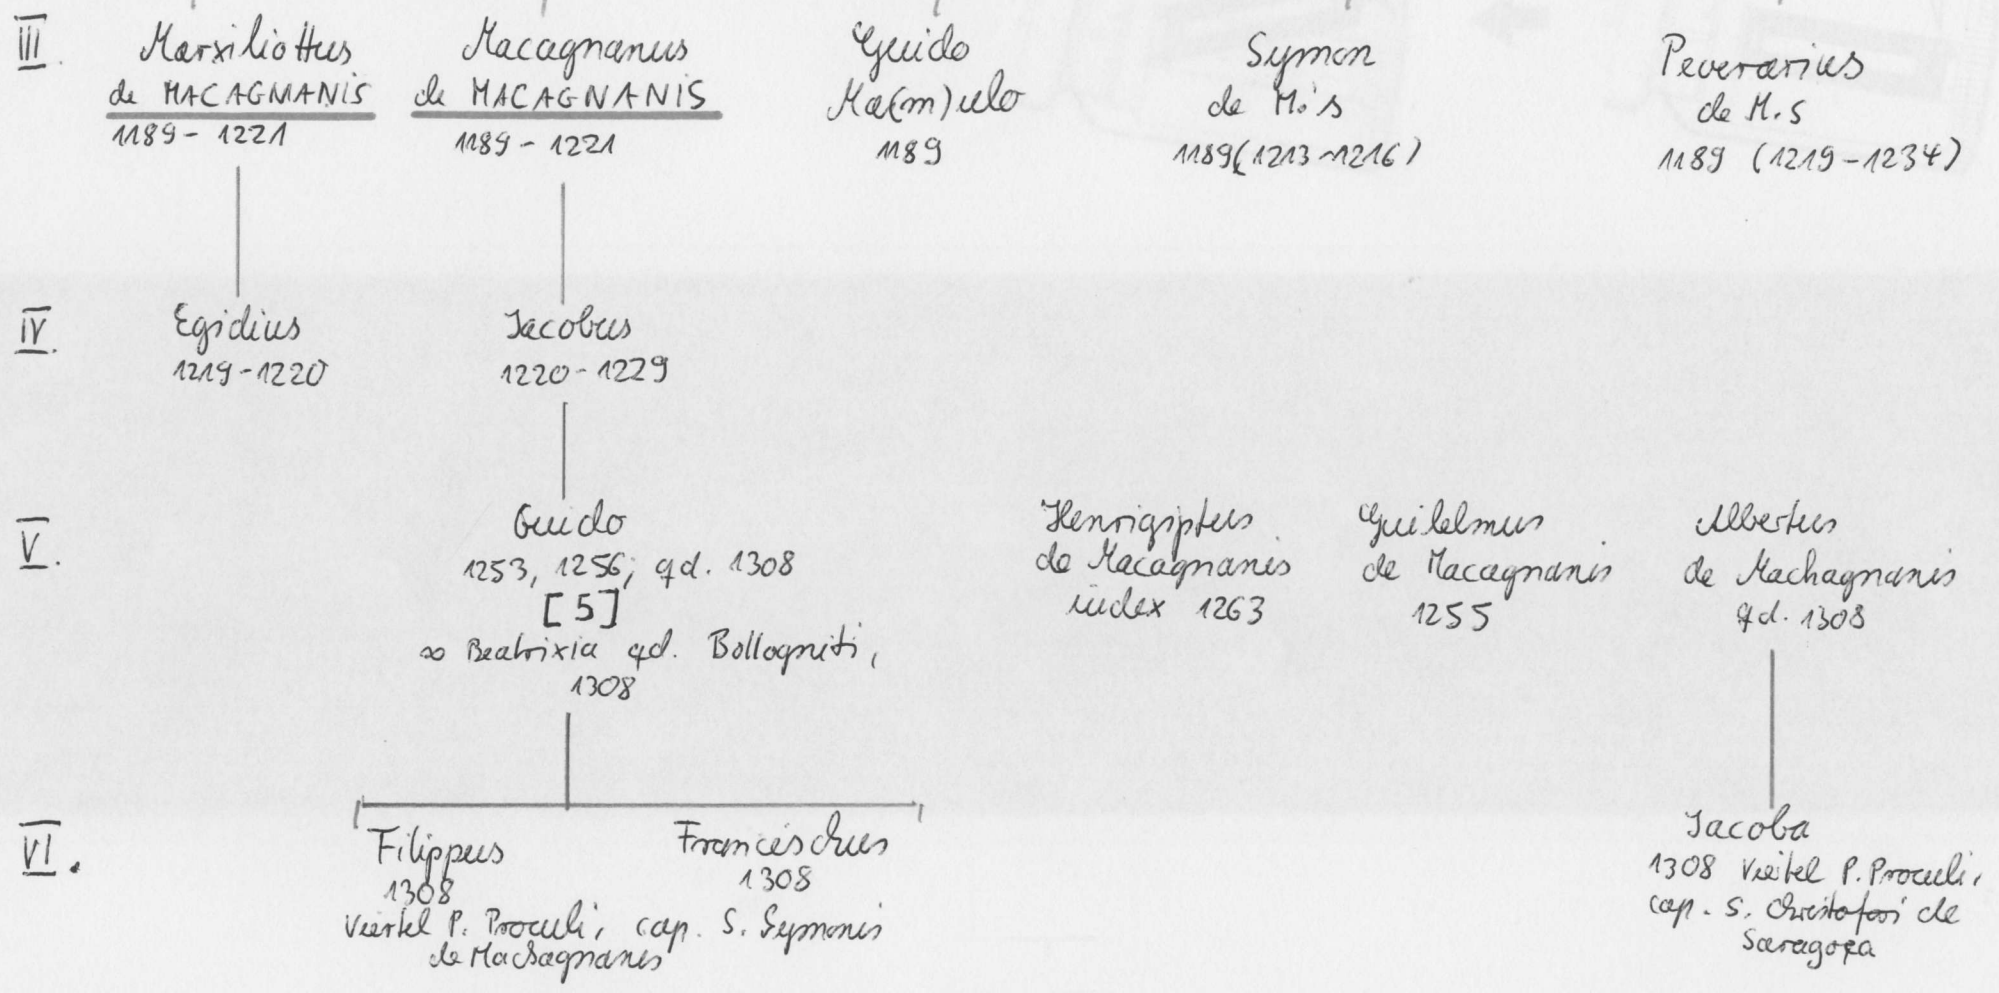 III.
Marxiliottus
de MACAGNANIS
1189 - 1221
Macagnanus
de MACAGNANIS
1189 - 1221
Guido
Ma(m)ulo
1189
Symon
de M.'s
1189 (1213-1216)
Peverarius
de M.s
1189 (1219-1234)
IV.
Egidius
1219-1220
Jacobus
1220-1229
V.
Guido
1253, 1256; qd. 1308
[5]
∞ Beatrixia qd. Bollogniti,
1308
Henrigiptus
de Macagnanis
iudex 1263
Guilelmus
de Macagnanis
1255
Albertus
de Machagnanis
qd. 1308
VI.
Filippus
1308
Francischus
1308
Viertel P. Proculi, cap. S. Symonis
de Machagnanis
Jacoba
1308 Viertel P. Proculi,
cap. S. Christofori de
Saragoça